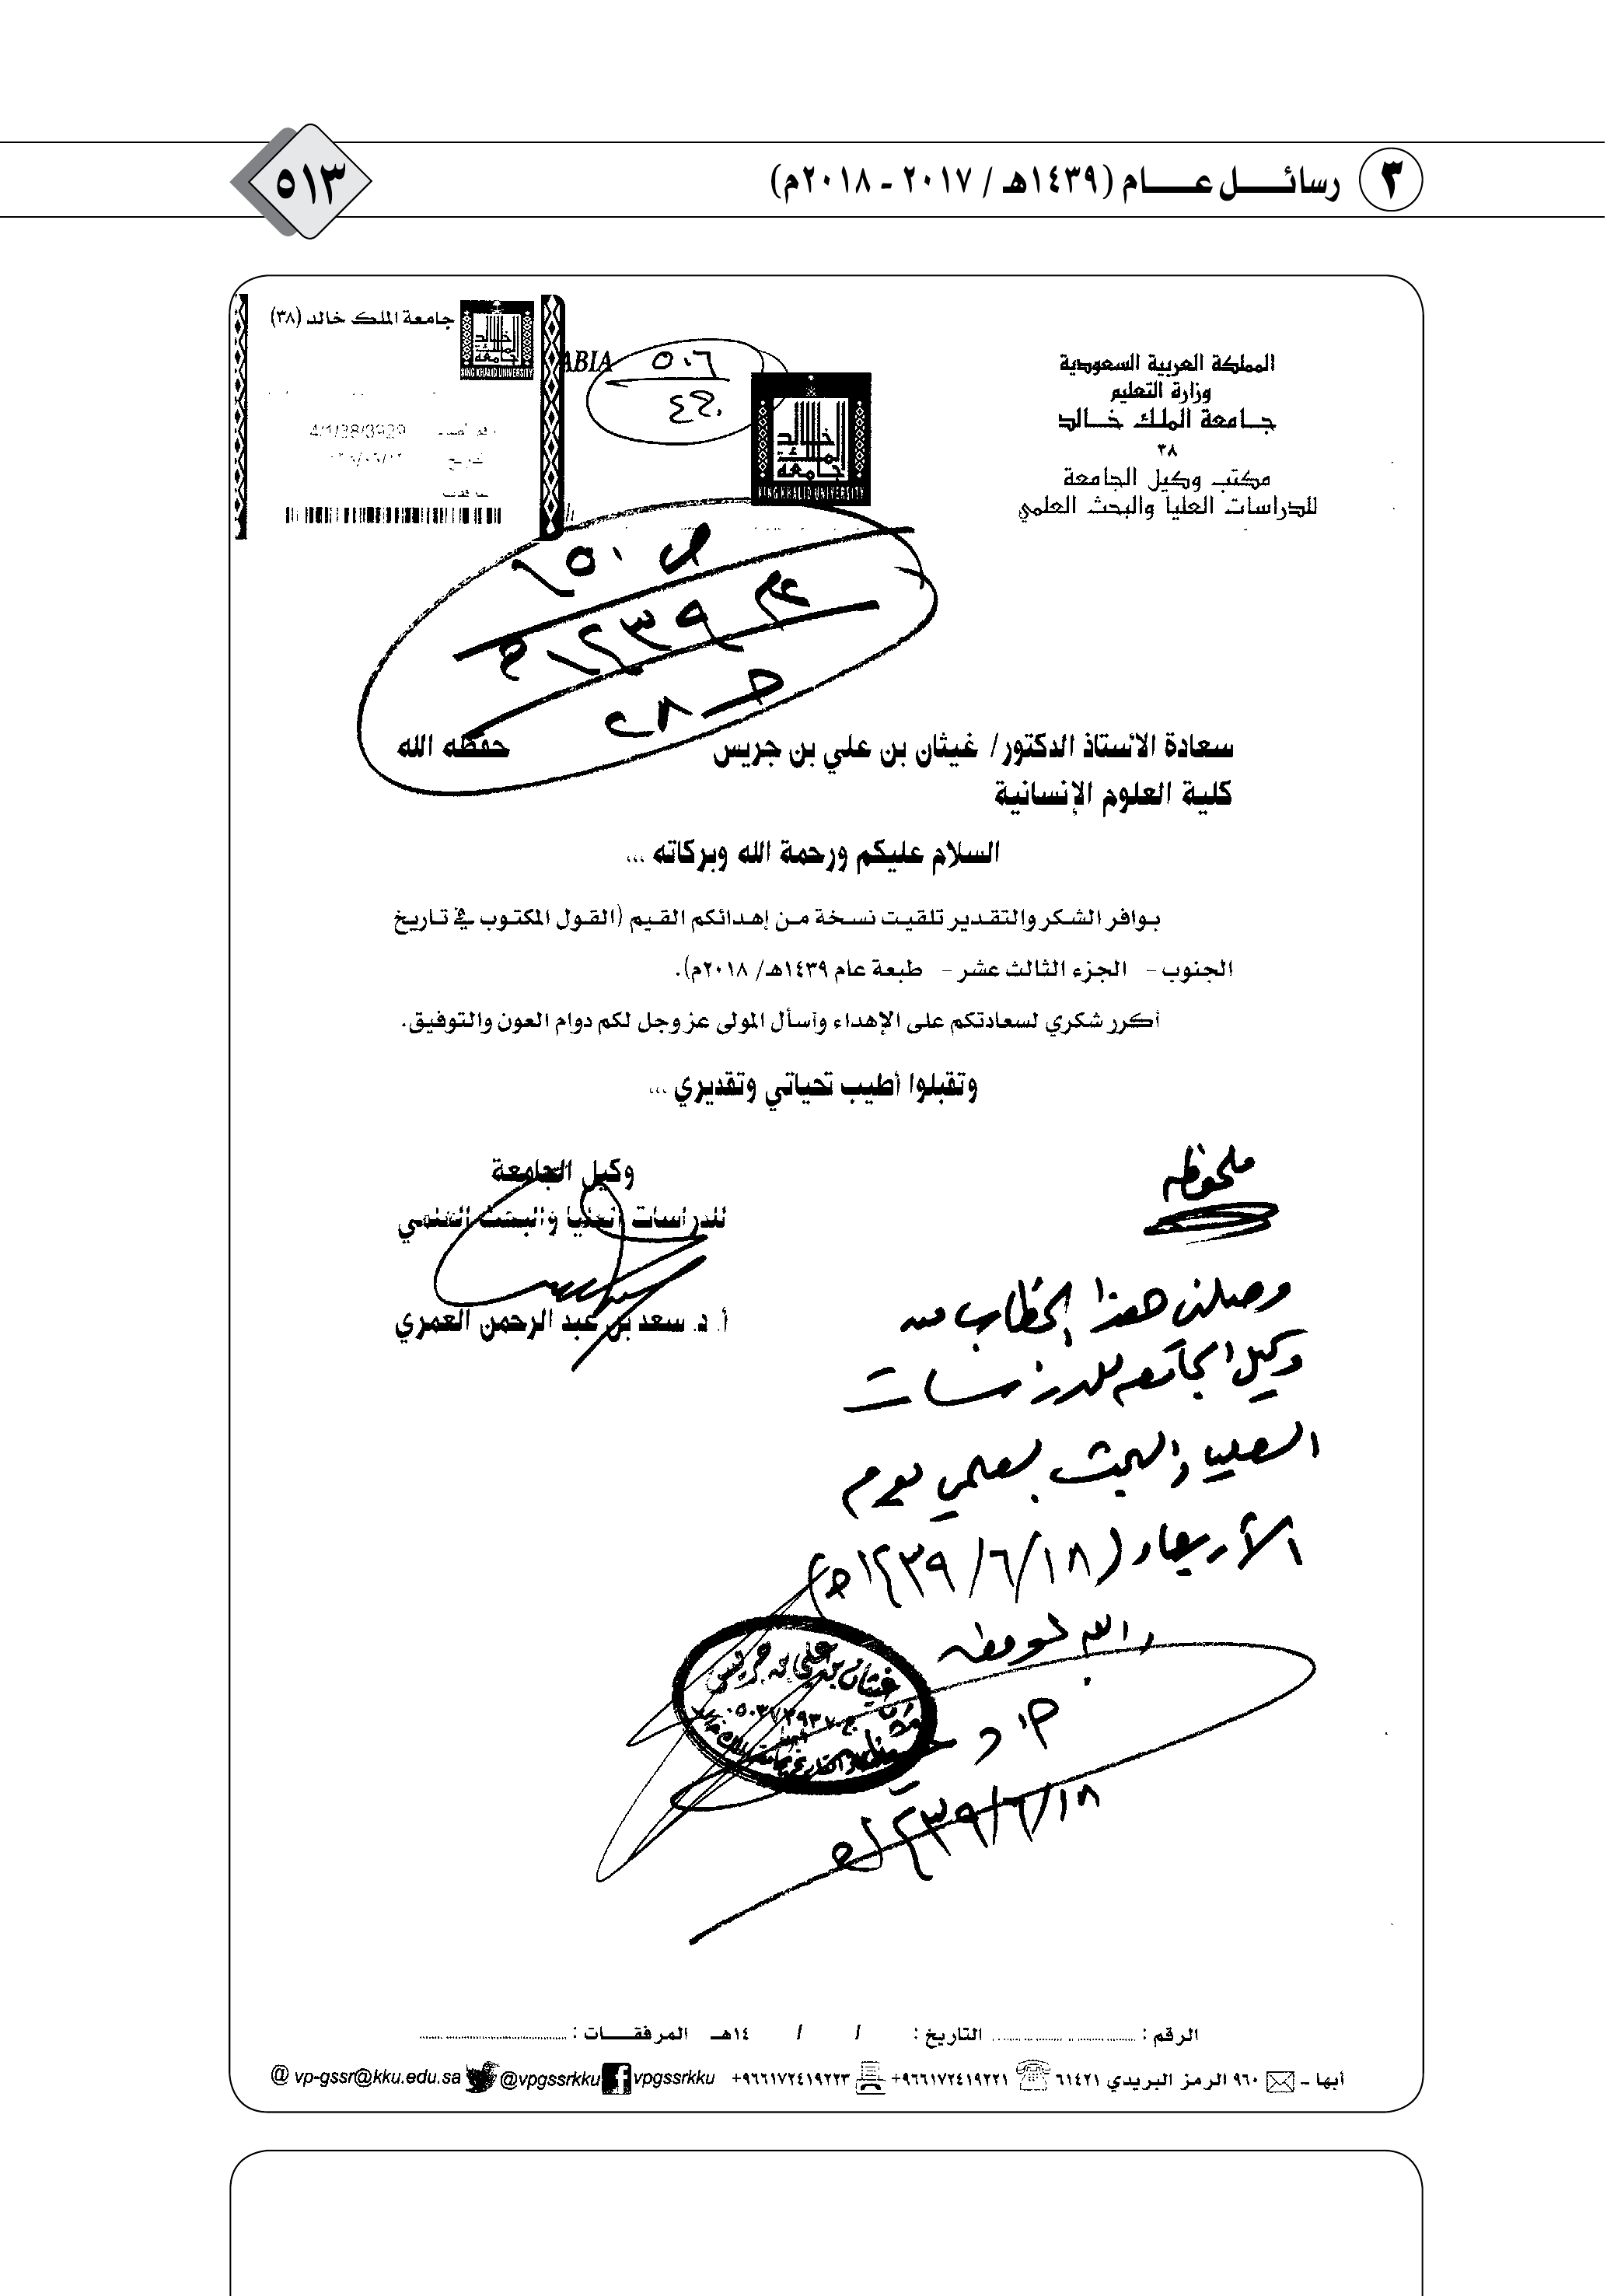 ٣ رسائل عام (١٤٣٩هـ / ٢٠١٧ - ٢٠١٨م)
٥١٣
المملكة العربية السعودية
وزارة التعليم
جامعة الملك خالد
٣٨
مكتب وكيل الجامعة
للدراسات العليا والبحث العلمي
KING KHALID UNIVERSITY
ABIA
٥٠٦
جامعة الملك خالد (٣٨)
KING KHALID UNIVERSITY
4/1/38/3929
ص ٥٠٦
عام ١٤٣٩هـ
سعادة الأستاذ الدكتور/ غيثان بن علي بن جريس حفظه الله
كلية العلوم الإنسانية
السلام عليكم ورحمة الله وبركاته ...
بوافر الشكر والتقدير تلقيت نسخة من إهدائكم القيم (القول المكتوب في تاريخ
الجنوب - الجزء الثالث عشر - طبعة عام ١٤٣٩هـ/ ٢٠١٨م).
أكرر شكري لسعادتكم على الإهداء وأسأل المولى عز وجل لكم دوام العون والتوفيق.
وتقبلوا أطيب تحياتي وتقديري ...
وكيل الجامعة
للدراسات العليا والبحث العلمي
أ. د. سعد بن عبد الرحمن العمري
ملحوظه
وصلني هذا الخطاب من
وكيل الجامعه للدراسات
العليا والبحث العلمي يوم
الأربعاء (١٨/٦/١٤٣٩هـ)
والله الموفق
غيثان بن علي بن جريس
١٨/٦/١٤٣٩هـ
الرقم : التاريخ : / / ١٤هـ المرفقات :
أبها - ٩٦٠ الرمز البريدي ٦١٤٢١ +٩٦٦١٧٢٤١٩٢٢١ +٩٦٦١٧٢٤١٩٢٢٣ vpgssrkku @vpgssrkku @ vp-gssr@kku.edu.sa